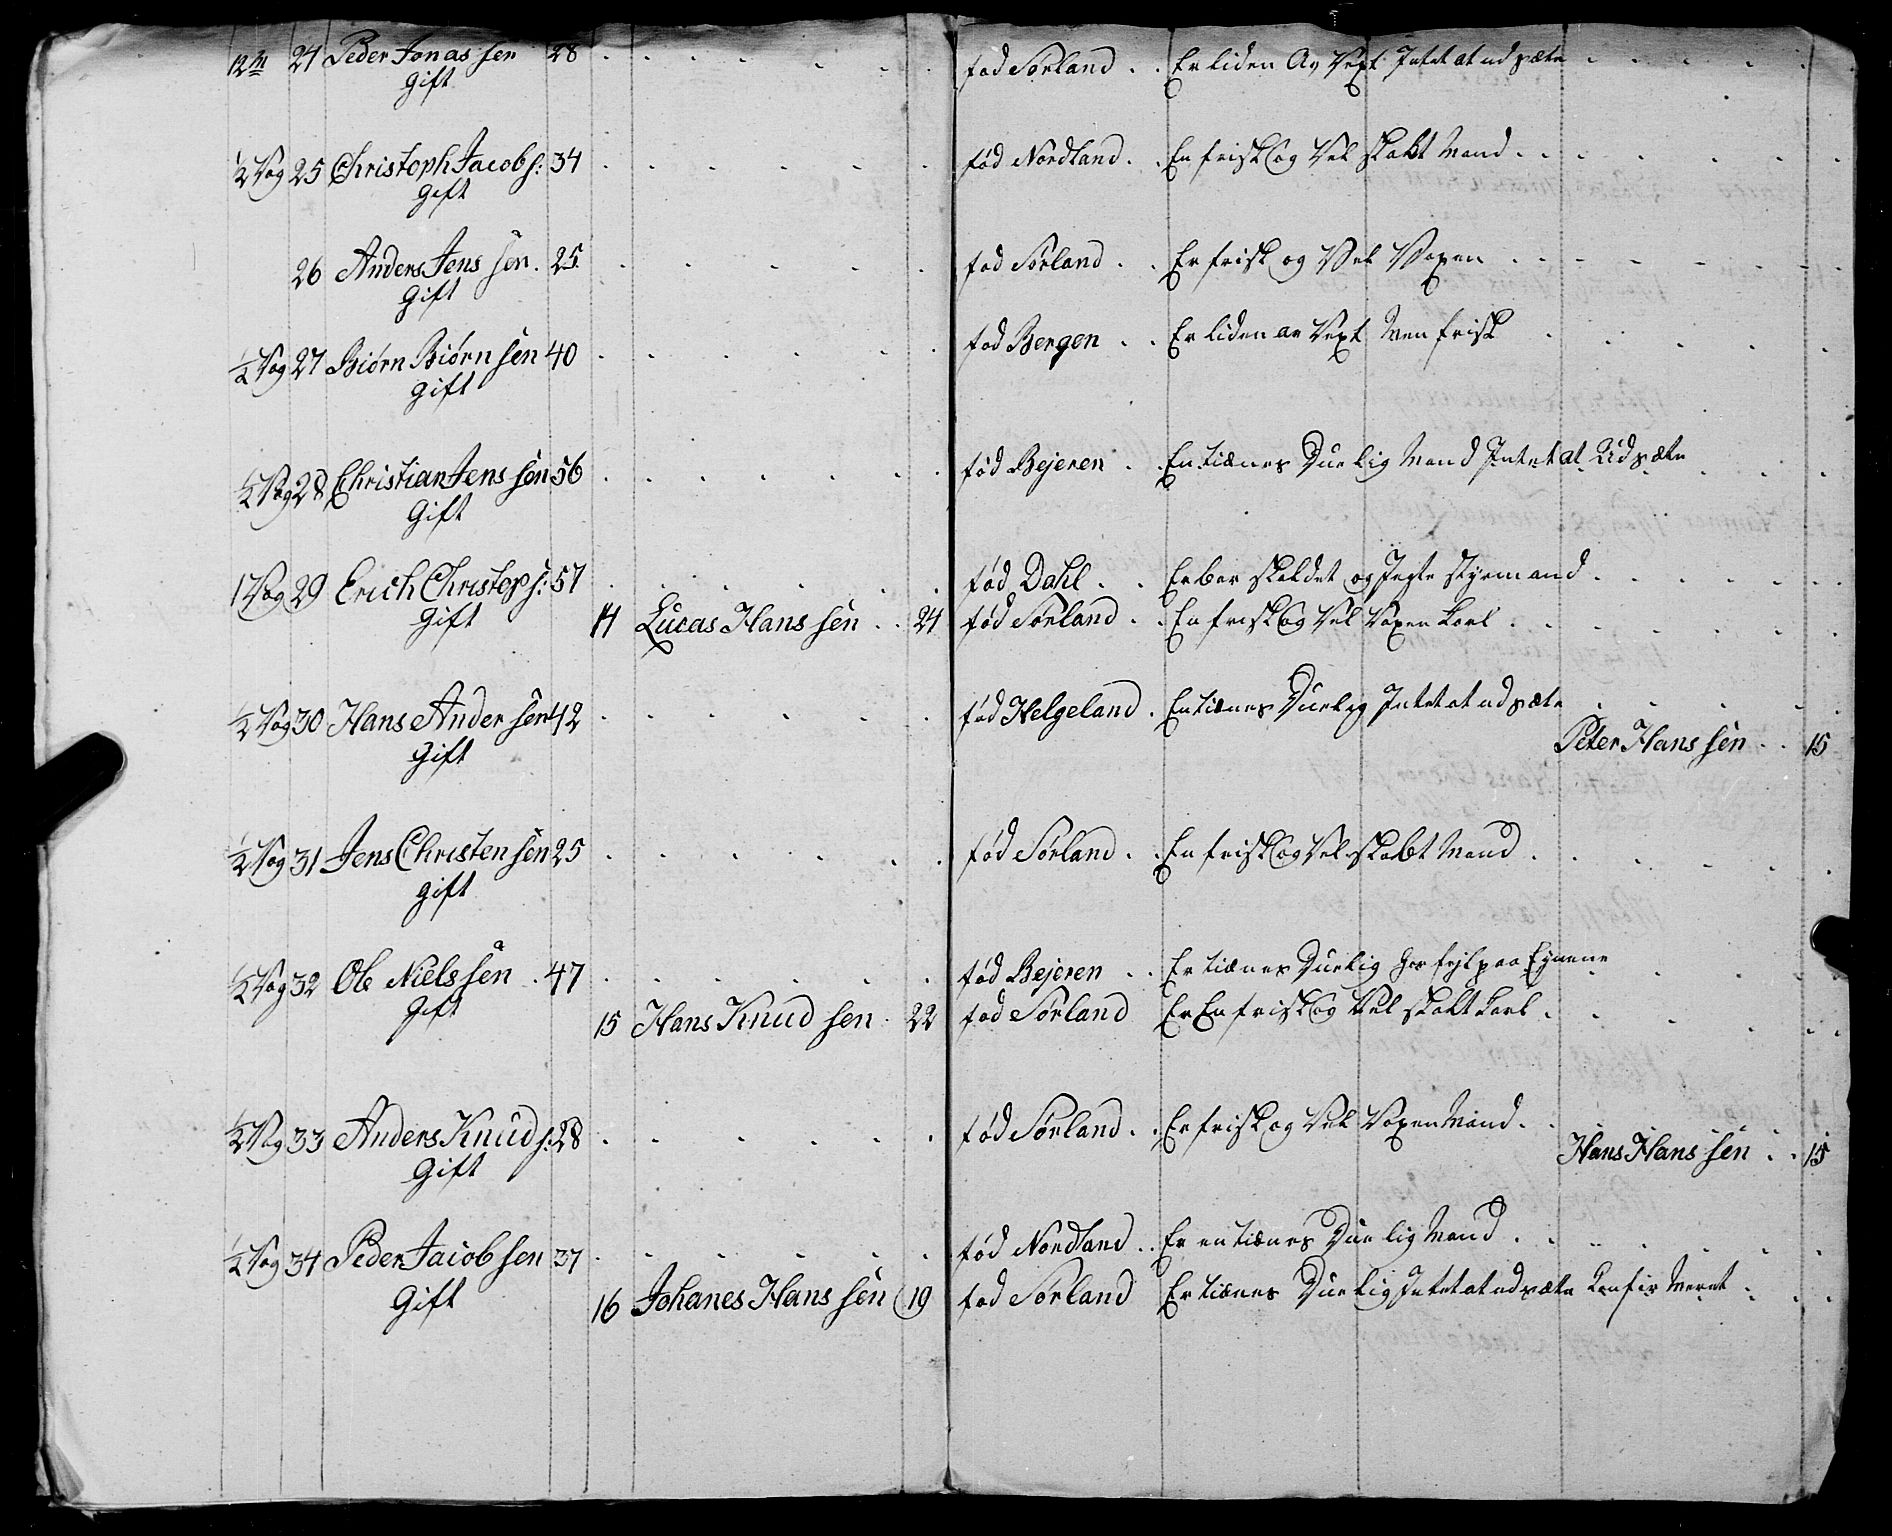 12 m 24 Peder Jonas sen 28 . . . . . . fød Sørland . . Er liden Av Vext Intet at udsætte . . . .
Gift
½ Vog 25 Christoph Jacob s: 34 . . . . . . fød Nordland . . En frisk og Vel skabt Mand . . . . .
Gift
26 Anders Jens sen . 25 . . . . . fød Sørland . . Er frisk og Vel Voxen . . . . .
Gift
½ Vog 27 Biørn Biørn sen 40 . . . . . . fød Bergen . . Er liden av Vext Men frisk . . . .
Gift
½ Vog 28 Christian Jens sen 56 . . . . . . fød Bejeren . . En tiænes Duelig Mand Intet at Udsætte . . .
Gift
1 Vog 29 Erich Christop s: 57 . . . . . . fød Dahl . . Er bar skaldet og Jegte styrmand . . . . .
Gift 14 Lucas Hans sen . . 24 fød Sørland . . En frisk og Vel Voxen karl . . . . .
½ Vog 30 Hans Ander sen 42 . . . . . . fød Helgeland . En tiænes Duelig Intet at udsætte . . . .
Peter Hans sen . . 15
Gift
½ Vog 31 Jens Christen sen 25 . . . . . . fød Sørland . . En frisk og Vel skabt Mand . . . . .
Gift
½ Vog 32 Ole Niels sen . 47 . . . . . . fød Bejeren . . Er tiænes Duelig har fejl paa Øynene . . .
Gift 15 Hans Knud sen . 22 fød Sørland Er En frisk og Vel skabt karl . . . . .
½ Vog 33 Anders Knud s: 28 . . . . . . fød Sørland . . Er frisk og Vel Voxen Mand . .
Hans Hans sen . . 15
Gift
½ Vog 34 Peder Jacob sen 37 . . . . . . fød Nordland . . Er en tiænes Duelig Mand . . . . .
Gift 16 Johanes Hans sen 19 fød Sørland Er tiænes Duelig Intet at udsætte Confirmeret . . .